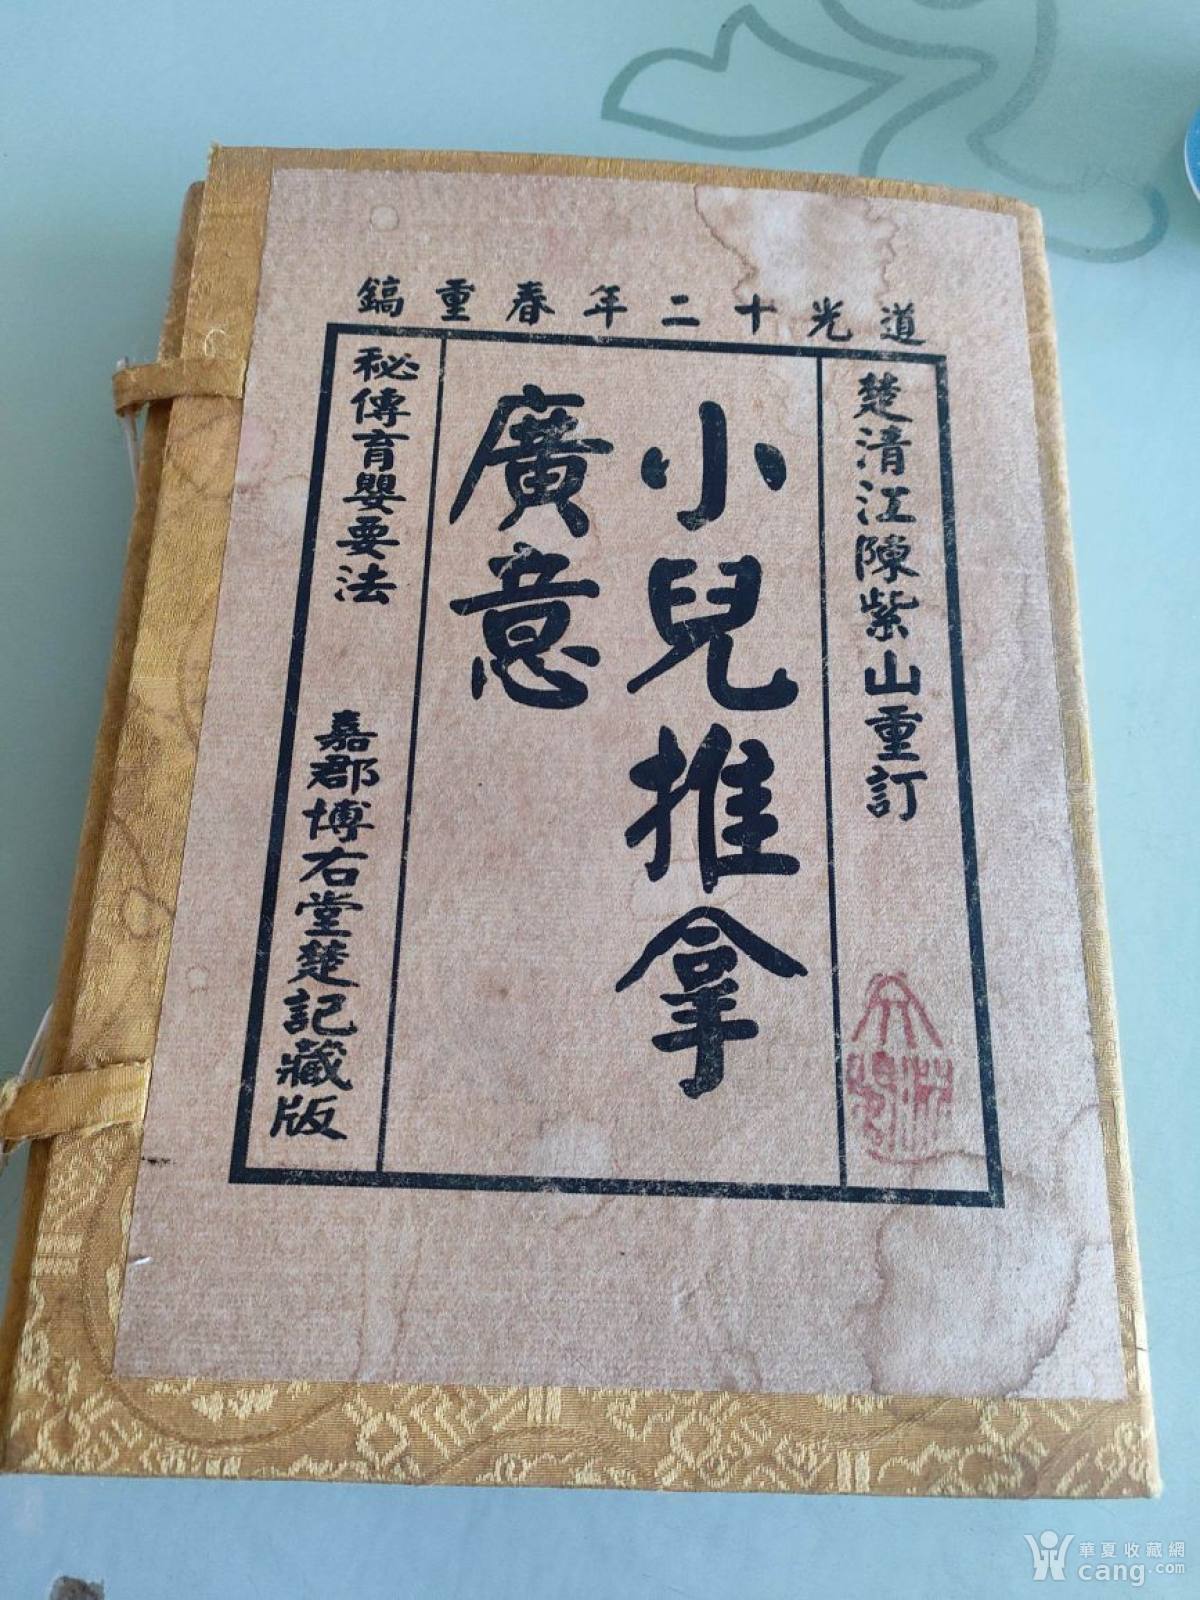 道光十二年春重鎬
楚清江陳紫山重訂
小兒推拿
廣意
秘傳育嬰要法
嘉郡博右堂楚記藏版
華夏收藏網
cang.com